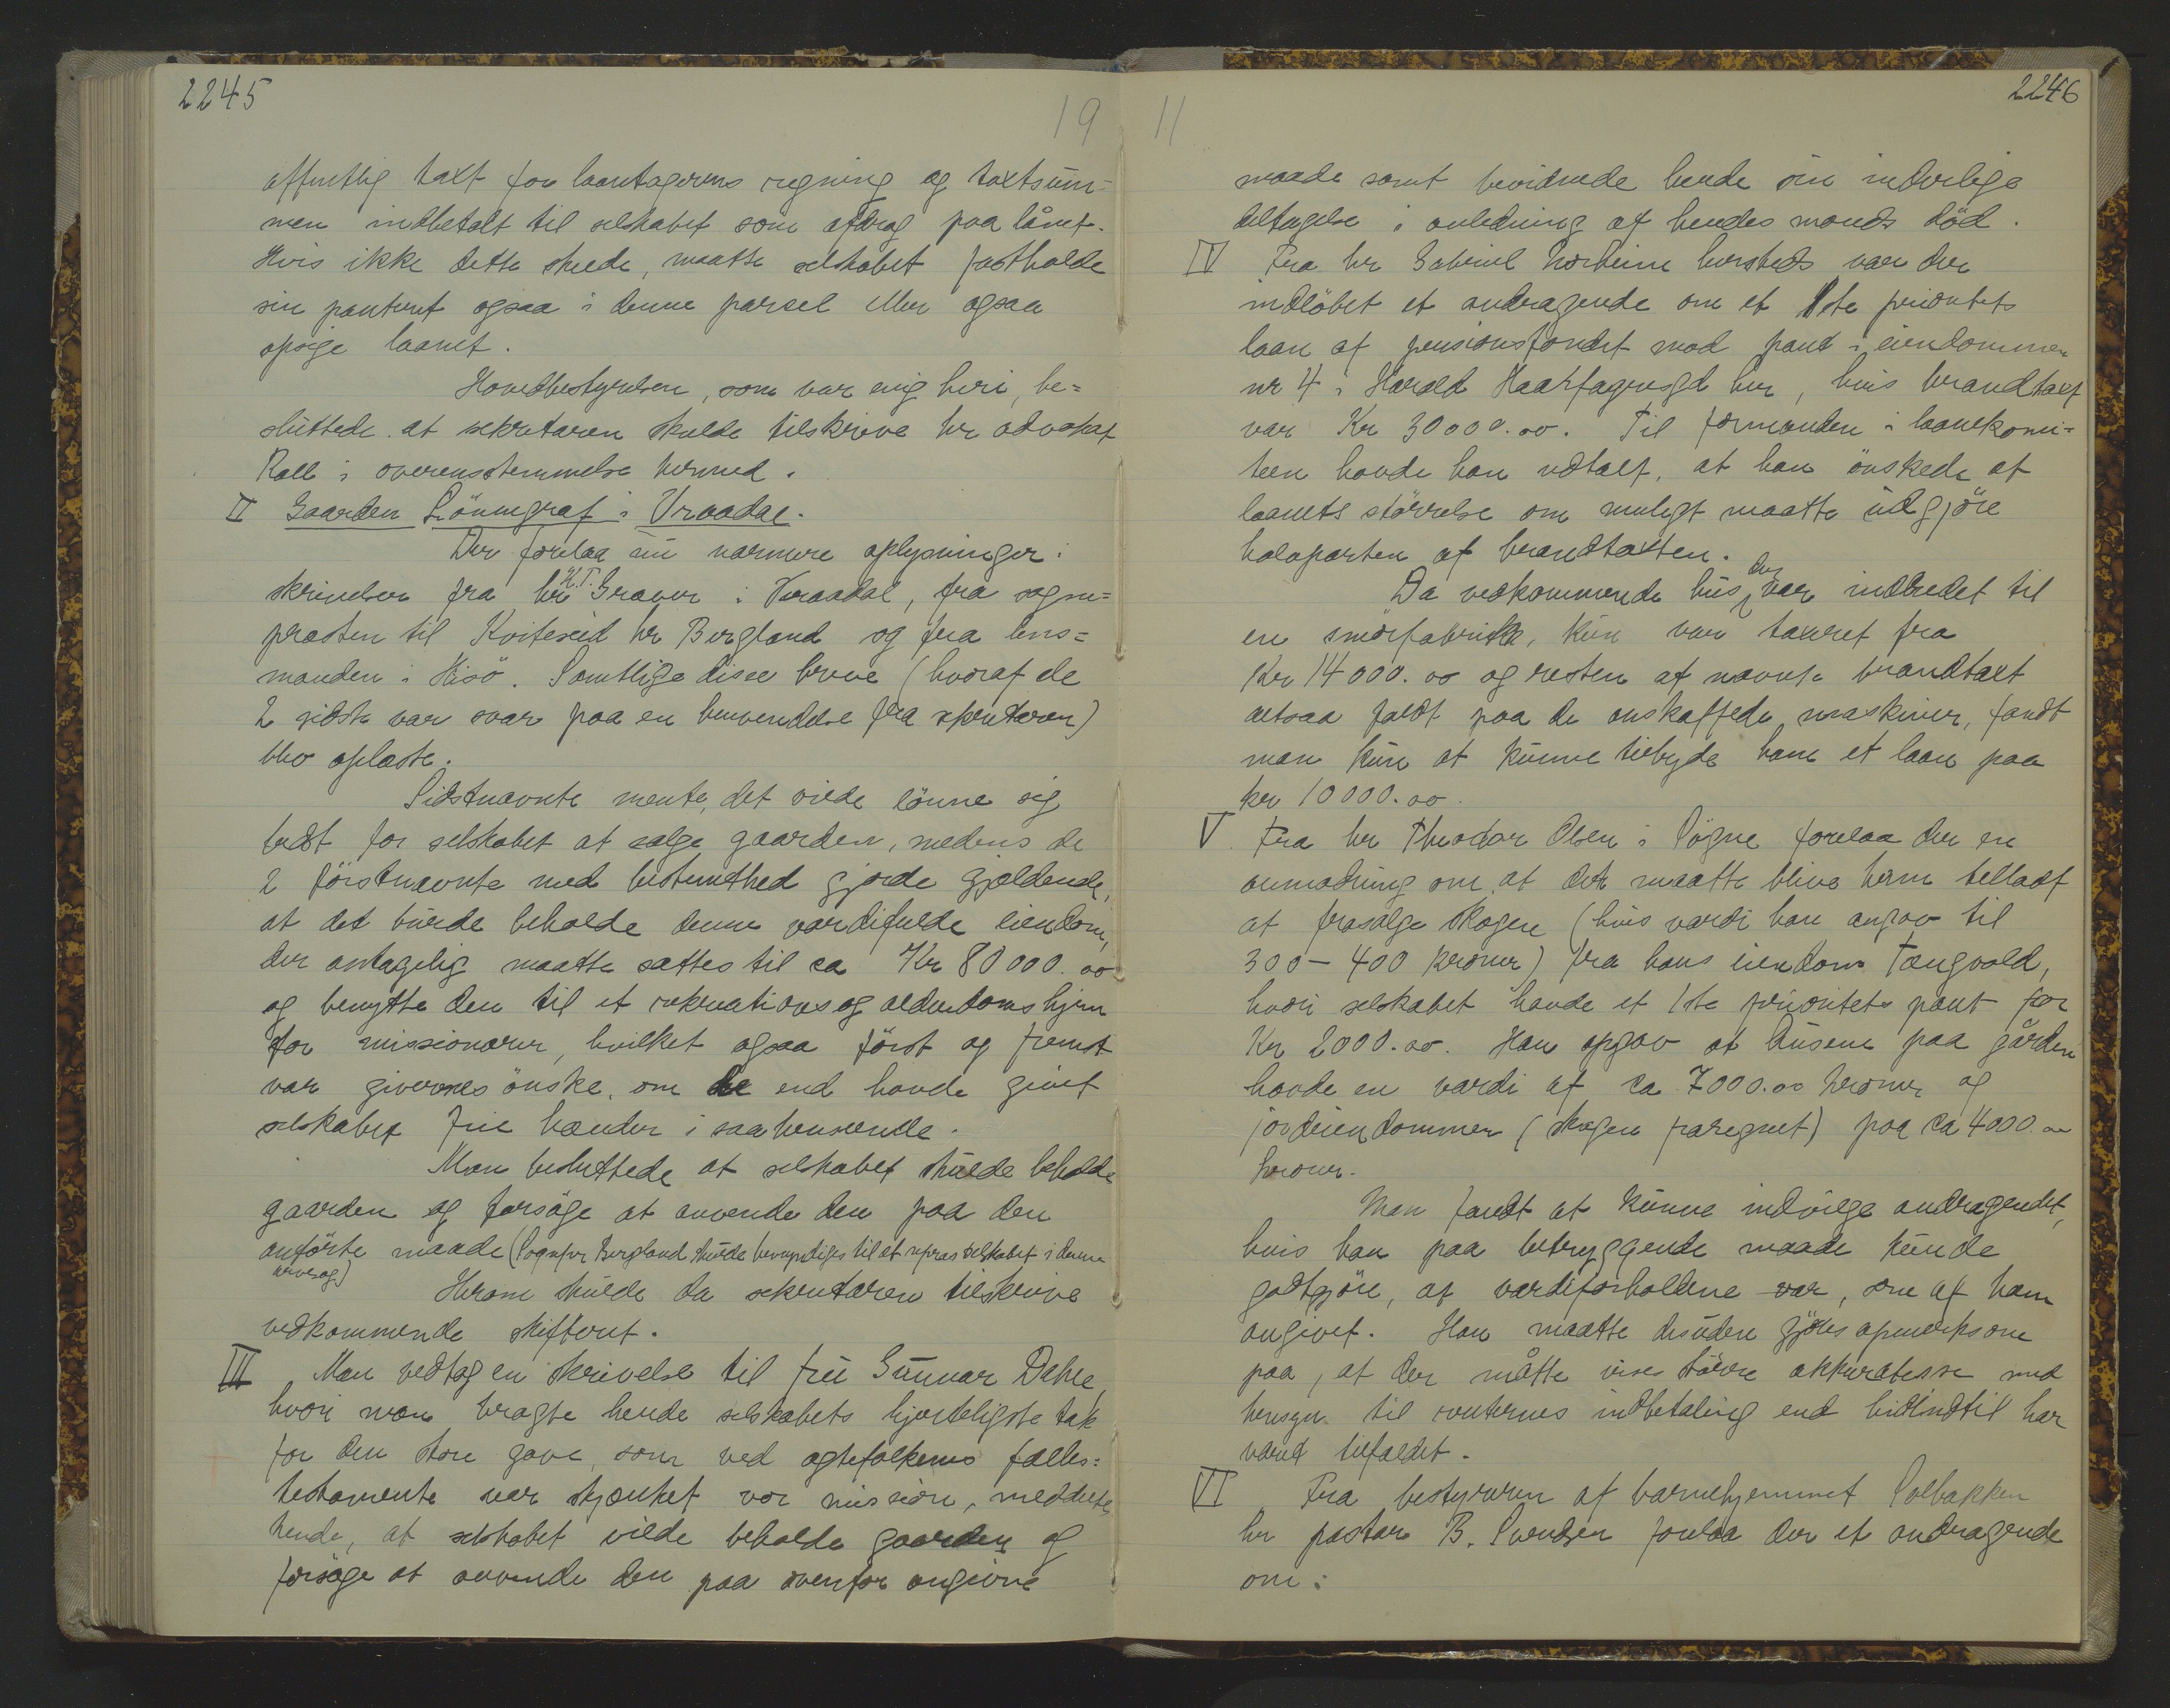 2245
19
offentlig taxt for laantagerens regning og taxtsum-
men indbetalt til selskabet som afdrag paa lånet.
Hvis ikke dette skeede, maatte selskabet fastholde
sin panteret ogsaa i denne parsel eller ogsaa
opsige laanet.
Hovedbestyrelsen, som var enig heri, be=
sluttede at sekretæren skulde tilskrive hr advokat
Rall i overensstemmelse hermed.
II Gaarden Lönnegraf i Vraadal.
Der forelaa nu nærmere oplysninger i
skrivelser fra hr K.T. Graver i Vraadal, fra sogne=
præsten til Kviteseid hr Bergland og fra lens=
manden i Hisö. Samtlige disse breve (hvoraf de
2 sidste var svar paa en henvendelse fra sekretæren)
blev oplæste.
Sidstnævnte mente, det vilde lönne sig
bedst for selskabet at sælge gaarden, medens de
2 förstnævnte med bestemthed gjorde gjældende,
at det burde beholde denne værdifulde eiendom,
der antagelig maatte sættes til ca Kr 80 000.00
og benytte den til et rekreations og alderdomshjem
for missionærer, hvilket ogsaa först og fremst
var givernes önske, om de end havde givet
selskabet frie hænder i saa henseende.
Man besluttede at selskabet skulde beholde
gaarden og forsöge at anvende den paa den
anförte maade (Sognepr Bergland skulde bemyndiges til at repræs selskabet i denne
arvesag)
Herom skulde da sekretæren tilskrive
vedkommende skifteret.
III Man vedtog en skrivelse til fru Gunnar Dahle,
hvori man bragte hende selskabets hjerteligste tak
for den store gave, som ved ægtefolkenes fælles=
testamente var skjænket vor mission, meddelte
hende, at selskabet vilde beholde gaarden og
forsöge at anvende den paa ovenfor angivne
11
2246
maade samt bevidnede hende sin inderlige
deltagelse i anledning af hendes mands död.
IV Fra hr Gabriel hersteds var der
indlöbet et andragende om et 1ste prioritets
laan af pensionsfondet mod pant i eiendommen
nr 4 i Harald Haarfagresgd her, hvis brandtaxt
var Kr 30000.00. Til formanden i laanekomi=
teen havde han udtalt, at han önskede at
laanets störrelse om muligt maatte udgjöre
halvparten af brandtaxten.
Da vedkommende hus, der var indredet til
en smörfabrikk, kun var taxeret fra
Kr 14000.00 og resten af nævnte brandtaxt
altsaa faldt paa de anskaffede maskiner, fandt
man kun at kunne tilbyde ham et laan paa
kr 10000.00.
V. Fra hr Theodor Olsen i Sögne forelaa der en
anmodning om, at det maatte blive ham tilladt
at frasælge skogen (hvis værdi han angav til
300-400 kroner) fra hans eiendom Tangvald,
hvori selskabet havde et 1ste prioritets pant for
Kr 2000.00. Han opgav at husene paa gården
havde en værdi af ca 7000.00 kroner og
jordeiendommen (skogen fraregnet) paa ca 4000.00
kroner.
Man fandt at kunne indvilge andragendet,
hvis han paa betryggende maade kunde
godtgjöre, at værdiforholdene var, som af ham
angivet. Han maatte desuden gjöres opmerksom
paa, at der måtte vises större akkuratesse med
hensyn til renternes indbetaling end hidindtil har
været tilfældet.
VI Fra bestyreren af barnehjemmet Solbakken
hr pastor B. Svendsen forelaa der et andragende
om: